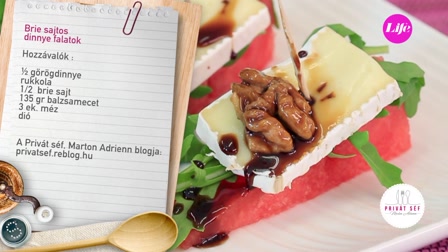 Brie sajtos
dinnye falatok
Hozzávalók :
½ görögdinnye
rukkola
1/2 brie sajt
135 gr balzsamecet
3 ek. méz
dió
A Privát séf, Marton Adrienn blogja:
privatsef.reblog.hu
Life
PRIVÁT SÉF